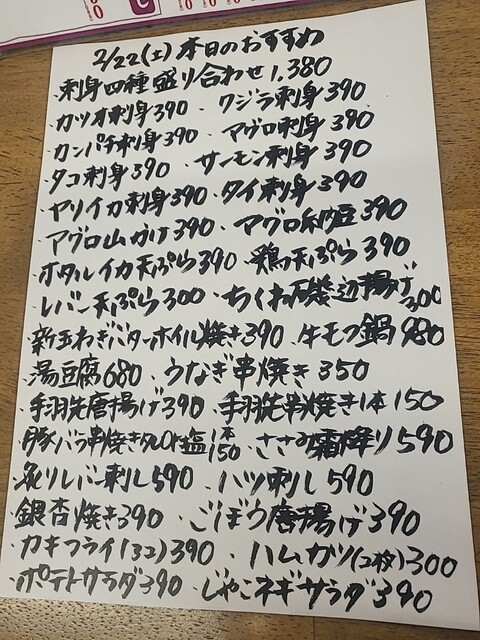 2/22(土)本日のおすすめ
・刺身四種盛り合わせ1,380
・カツオ刺身390 ・クジラ刺身390
・カンパチ刺身390 ・マグロ刺身390
・タコ刺身390 ・サーモン刺身390
・ヤリイカ刺身390 ・タイ刺身390
・マグロ山かけ390 ・マグロ納豆390
・ホタルイカ天ぷら390 ・鶏天ぷら390
・レバー天ぷら300 ・ちくわ磯辺揚げ300
・新玉ねぎバターホイル焼き390 ・牛モツ鍋980
・湯豆腐680 ・うなぎ串焼き350
・手羽先唐揚げ390 ・手羽先串焼き1本150
・豚バラ串焼きタレor塩1本150 ・ささみ霜降り590
・炙りレバー刺し590 ・ハツ刺し590
・銀杏焼き390 ・ごぼう唐揚げ390
・カキフライ(3コ)390 ・ハムカツ(2枚)300
・ポテトサラダ390 ・じゃこネギサラダ390